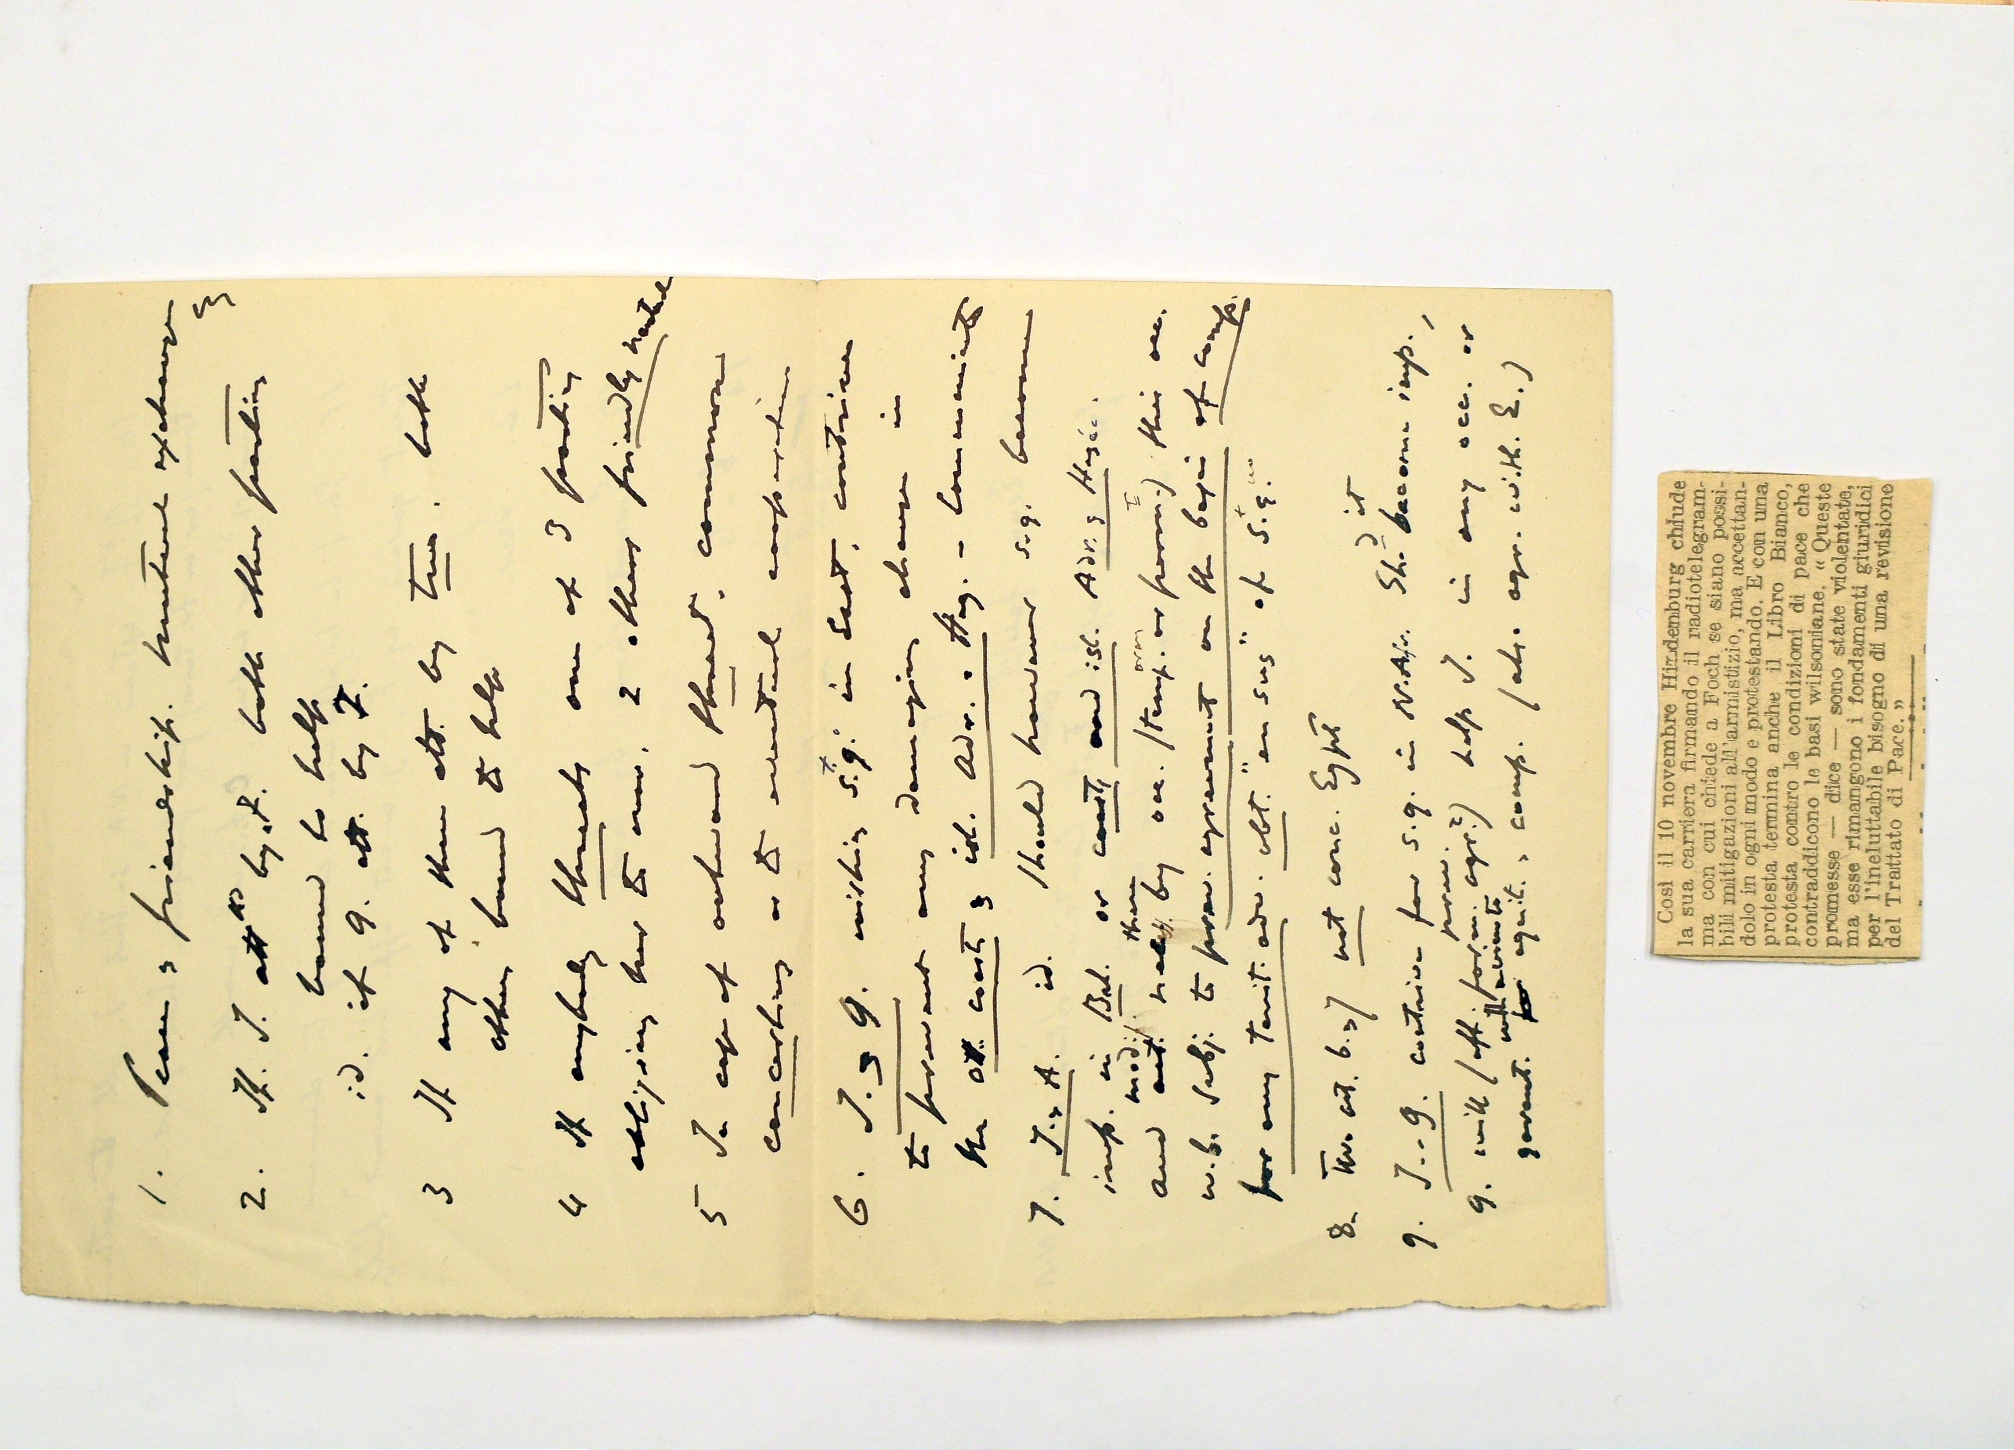 1. Peace & friendship. mutual exchange
2. If I. att. by F. both other parties
bound to help
id. if G. att. by F.
3 If any of them att. by two, both
others bound to help
4 If anybody threatens one of 3 parties
obliging her to war, 2 others friendly neutral
5 In case of outward threat, common
concerting as to eventual cooperation
6. I. & G. wishing s.q. in East, continue
to prevent any damaging change in
the ott. coasts & isl. Adr. & Aeg. - Communicate
7. I. & A. id. Should however s.q. become
imp. in Balk. or coasts and isl. Adr. & Aegec.
and need them by occ. (temp. or perm.) this occ.
w. b. subj. to prev. agreement on the basis of comp.
for any territ. adv. obt. "en sus" of s.q.
8. Two art. 6 & 7 not conc. Egypt
9. I. - G. continue for s.q. in N. Afr. Sh. it become imp.,
G. will (aft. form. & prev. agr.) help I. in any occ. or
garant. equil. & comp. (also agr. with E.)
Così il 10 novembre Hindemburg chiude
la sua carriera firmando il radiotelegram-
ma con cui chiede a Foch se siano possi-
bili mitigazioni all'armistizio, ma accettan-
dolo in ogni modo e protestando. E con una
protesta termina anche il Libro Bianco,
protesta contro le condizioni di pace che
contraddicono le basi wilsoniane. « Queste
promesse — dice — sono state violentate,
ma esse rimangono i fondamenti giuridici
per l'ineluttabile bisogno di una revisione
del Trattato di Pace. »